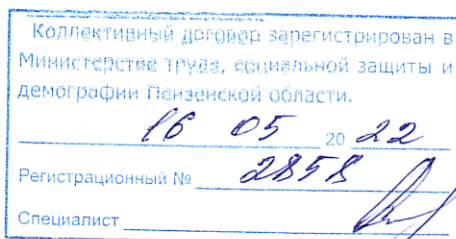 Коллективный договор зарегистрирован в
Министерстве труда, социальной защиты и
демографии Пензенской области.
16 05 20 22
Регистрационный № 2858
Специалист